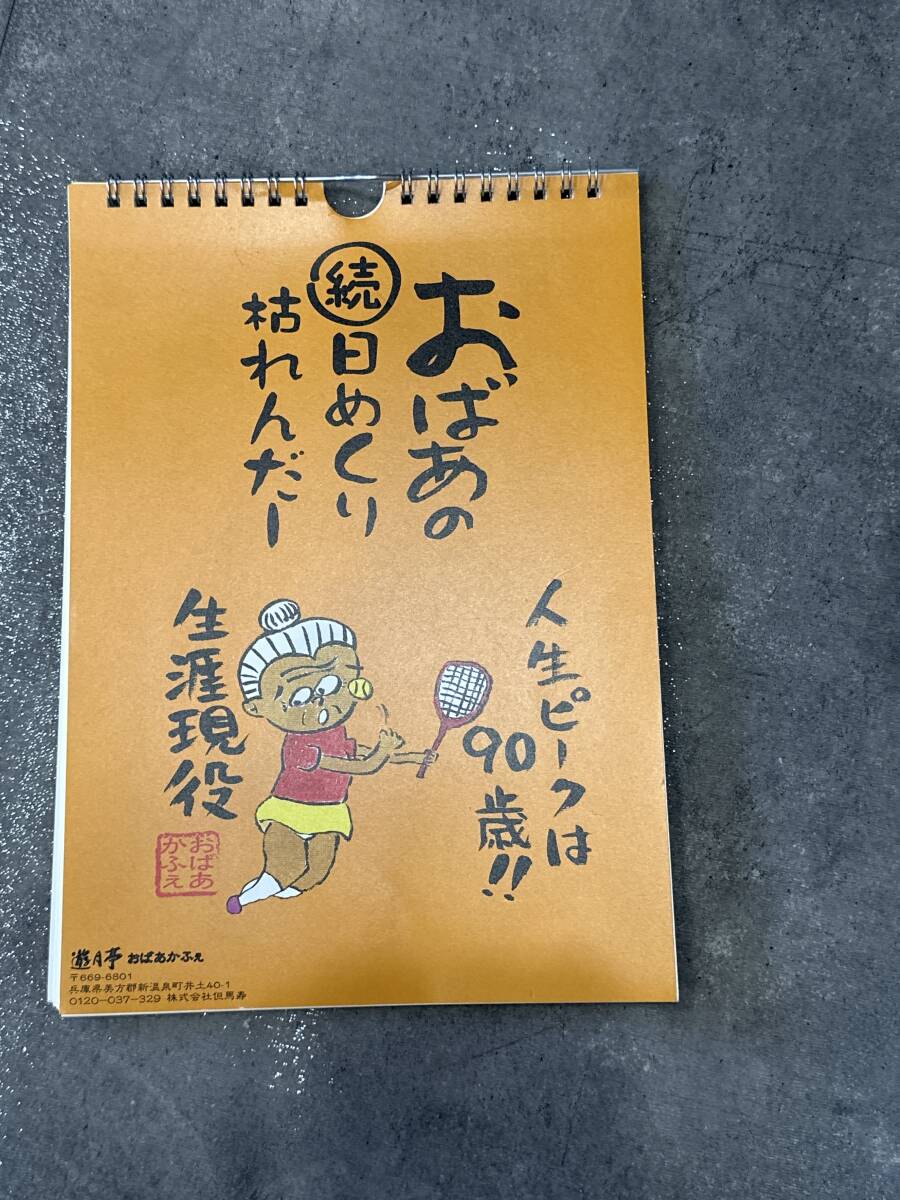 おばあの
㊙続日めくり
枯れんだー
人生ピークは
90歳!!
生涯現役
おばあ
かふぇ
遊月亭 おばあかふぇ
〒669-6801
兵庫県美方郡新温泉町井土40-1
0120-037-329 株式会社但馬寿